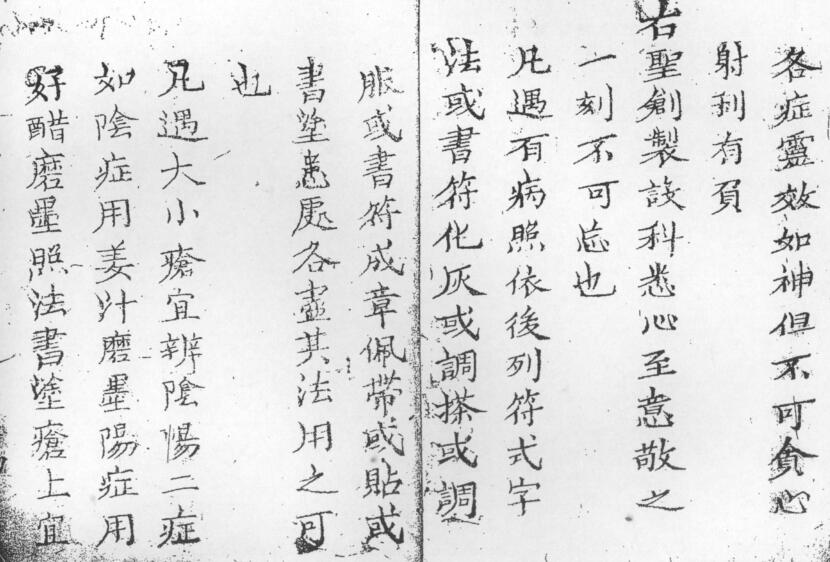 各症靈效如神但不可貪心
射利有負
右聖劍製設科悉心至意敬之
一刻不可忘也
凡遇有病照依後列符式字
法或書符化灰或調搽或調
服或書符成章佩帶或貼或
書塗患處各盡其法用之可
也
凡遇大小瘡宜辨陰陽二症
如陰症用姜汁磨墨陽症用
好醋磨墨照法書塗瘡上宜